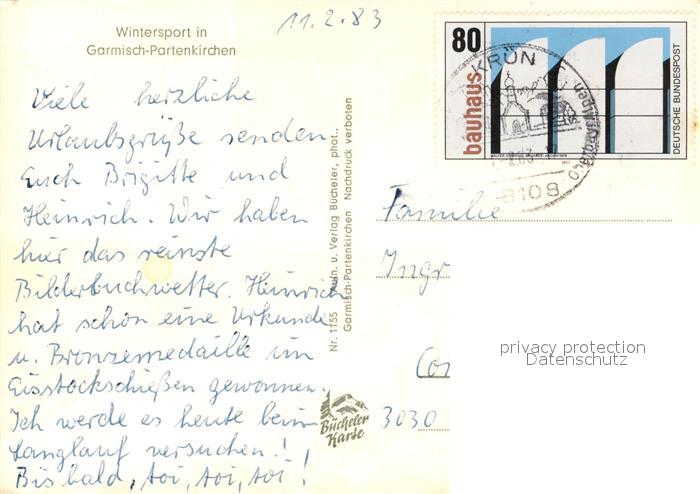 11.2.83
Wintersport in
Garmisch-Partenkirchen
Viele herzliche
Urlaubsgrüße senden
Euch Brigitte und
Heinrich. Wir haben
hier das reinste
Bilderbuchwetter. Heinrich
hat schon eine Urkunde
u. Bronzemedaille im
Eisstockschießen gewonnen.
Ich werde es heute beim
Langlauf versuchen!
Bis bald, toi, toi, toi!
Nr. 1155 Aufn. u. Verlag Bücheler, phot.,
Garmisch-Partenkirchen Nachdruck verboten
Bücheler
Karte
80
bauhaus
DEUTSCHE BUNDESPOST
KRÜN
8108
Familie
Ingr
Cor
3030
privacy protection
Datenschutz